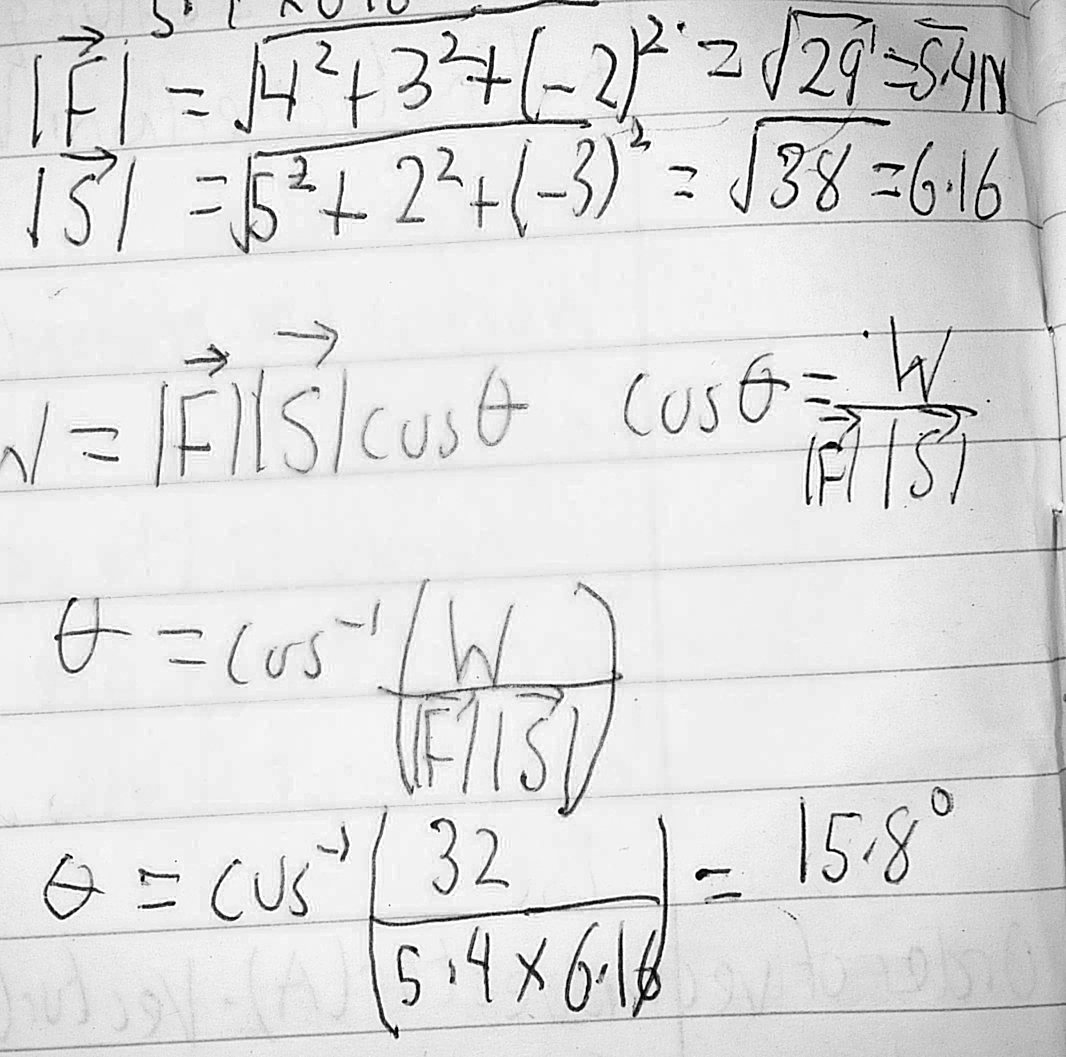 |F⃗| = √4² + 3² + (-2)² = √29 = 5.4N
|S⃗| = √5² + 2² + (-3)² = √38 = 6.16
W = |F⃗||S⃗| cosθ cosθ = W / |F⃗||S⃗|
θ = cos⁻¹ (W / |F⃗||S⃗|)
θ = cos⁻¹ (32 / 5.4 × 6.16) = 15.8°